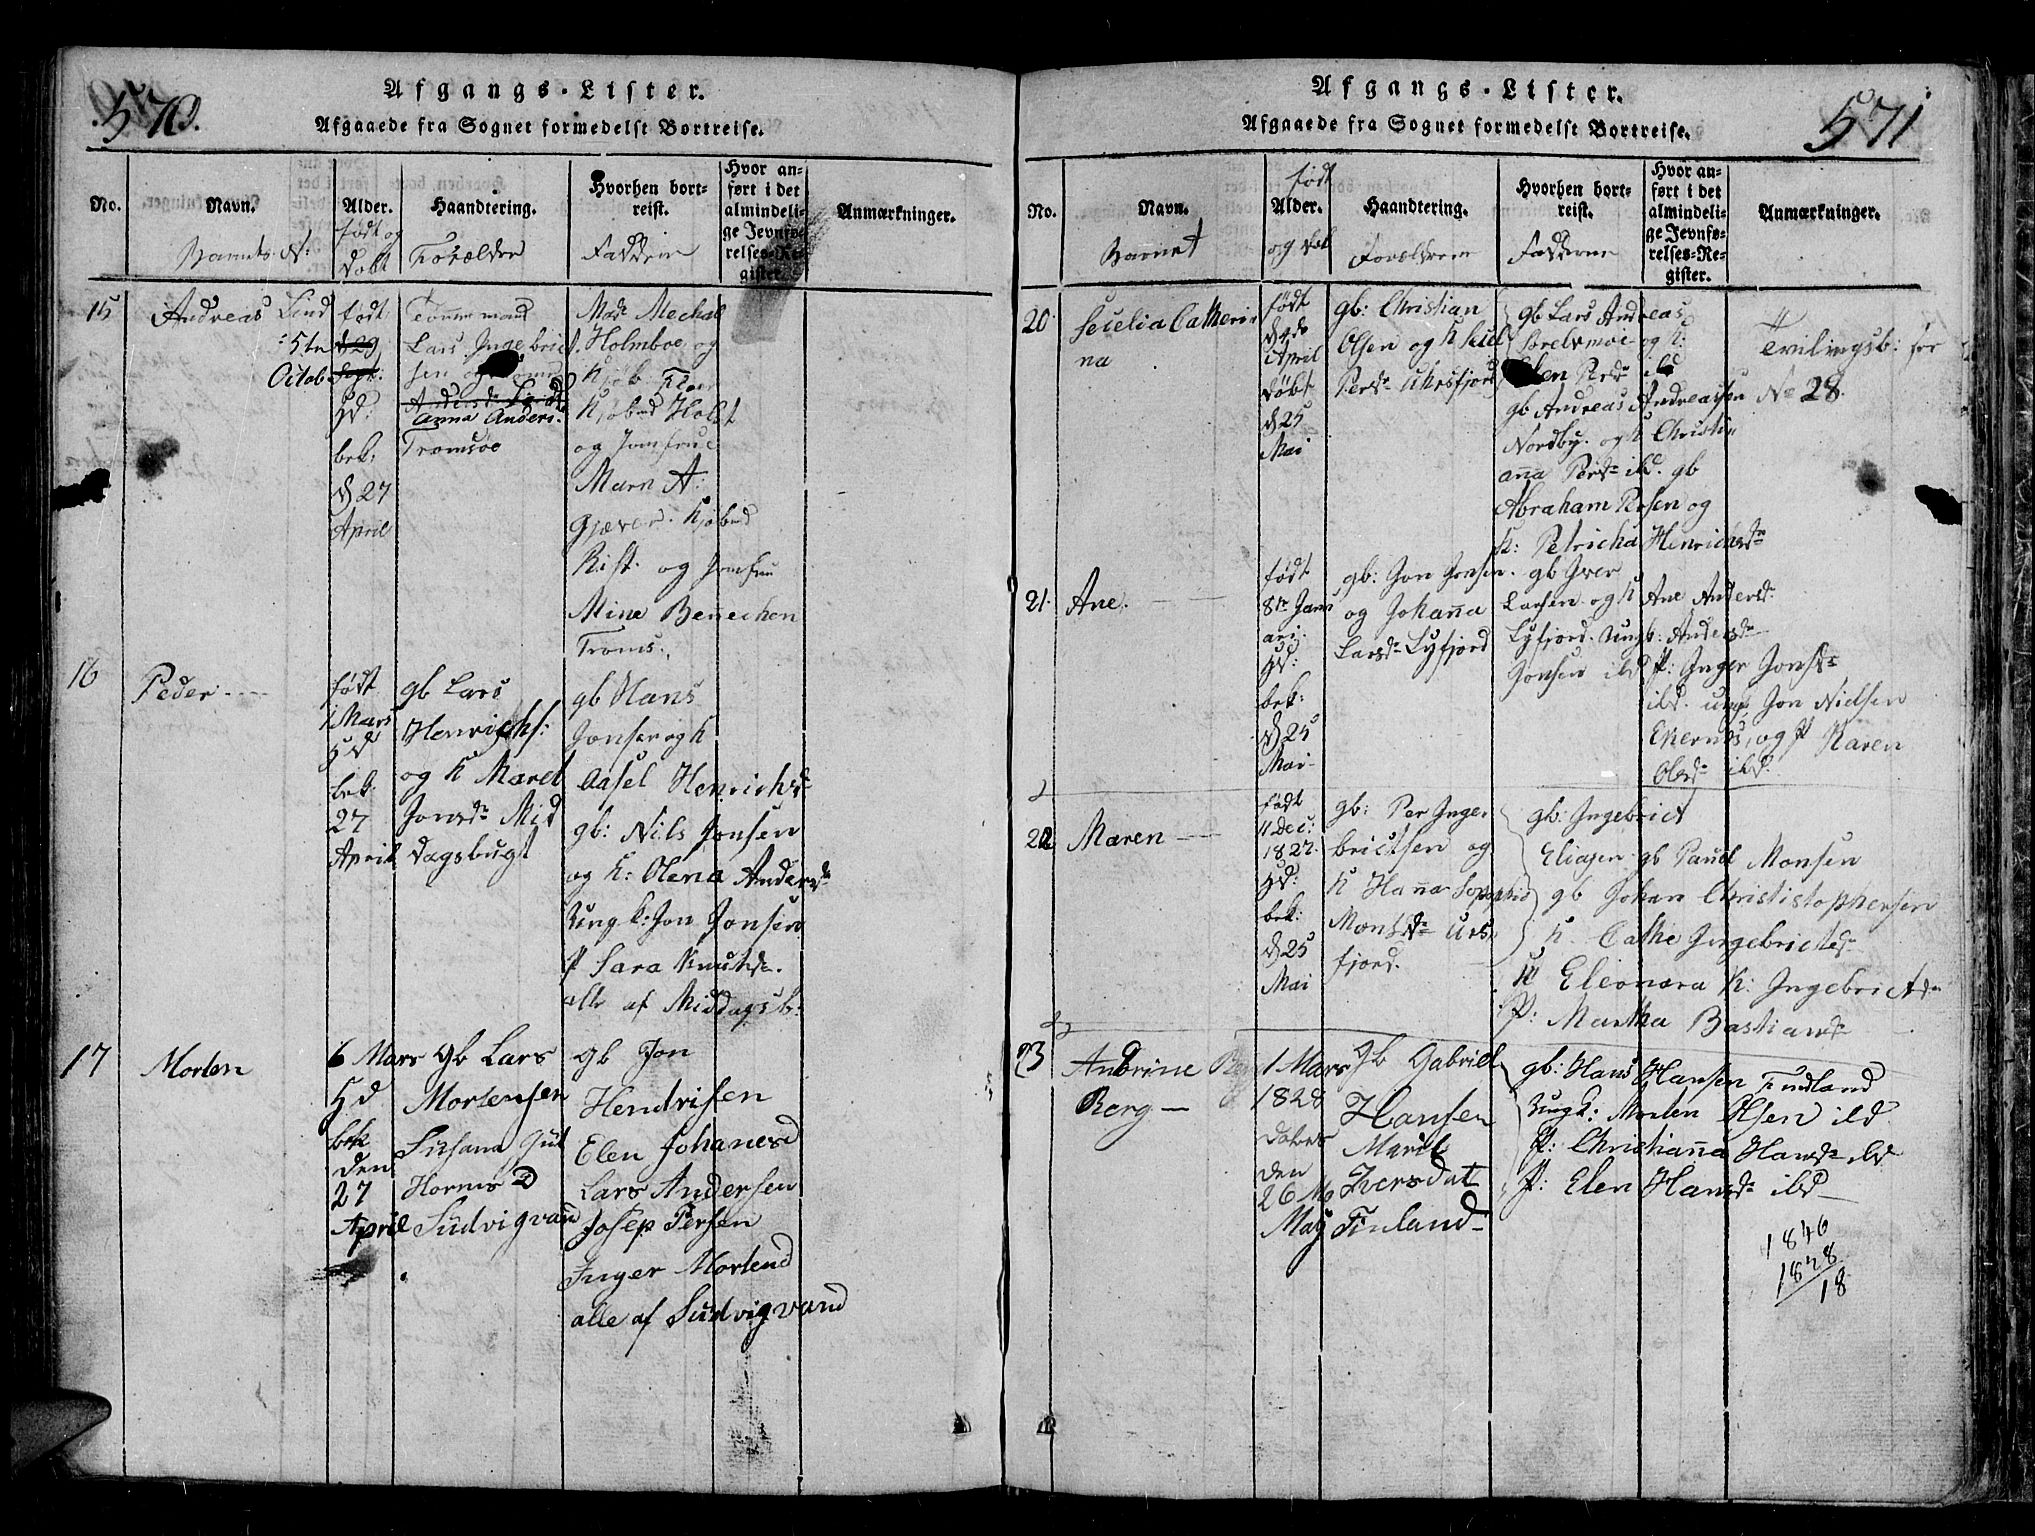 570.
Afgangs-Lister.
Afgaaede fra Sognet formedelst Bortreise.
No.
Navn.
Barnets N:
Alder.
født og
Døbt
Haandtering.
Forældre
Hvorhen bort-
reist.
Faddere
Hvor an-
ført i det
almindeli-
ge Jevnfø-
relses-Re-
gister.
Anmærkninger.
15
Andreas Lind
født
5te
Octob
Hd:
bek:
d 27
April
Tømmermand
Lars Ingebrict-
sen og
Anna Anders:
Tromsøe
Mad: Mechal
Holmboe og
Kjøb:
Kjøbmd Holst
og Jomfrue
Marn A:
Gjæver. Kjøbmd
Rist. og Jomfru
Mine Benechen
Troms.
16
Peder
født
1 Mars
Hd
bek:
27
April
gb Lars
Henrichs:
og K Maret
Jonsdr Mid
dagsbugt
gb Hans
Jonsen og K
Aasel Henrichsd
gb: Nils Jonsen
og K: Olena Andersdr
Ungk: Jon Jonsen
P Sara Knutsdr.
alle af Middagsb:
17
Morten
6 Mars
Hd
bek
den
27
April
Gb Lars
Mortensen
Susana Gut
Horms D
Sudvigvand
gb Jon
Hendrisen
Elen Johanesd
Lars Andersen
Josep Persen
Inger Mortend
alle af Sudvigvand
571
Afgangs-Lister.
Afgaaede fra Sognet formedelst Bortreise.
No.
Navn.
Barnet
født
Alder.
og døbt
Haandtering.
Forældrene
Hvorhen bort-
reist.
Fadderne
Hvor an-
ført i det
almindeli-
ge Jevnfø-
relses-Re-
gister.
Anmærkninger.
20.
Secelia Catheri
na
født
d 4de
April
Døbt
d 25
Mai
gb: Christian
Olsen og K
Persdr Uhrsfjord
gb Lars Andreas
og K:
Elen Persdr ibd
gb Andreas Andreassen
Nordby. og K Christi
anna Persdr ibd. gb
Abraham Persen og
K: Petricha Henrichsdr
Tvilingsb: før
No 28.
21.
Ane.
født
8de Janu
ari.
Hd:
bek:
d 25
Mai
gb: Jon Jonsen.
og Johanna
Larsdr Lyfjord
gb Iver
Larsen og K Ane Andersdr
Lyfjord. Ungk: Anders
Jonsen ibd P: Inger Jonsdr
ibd. ungk Jon Nielsen
Ekernes, og P Karen
Olsdr ibd.
22
Maren
født
11 Dec:
1827.
Hd:
bek:
d 25
Mai
gb: Per Inge
brictsen og
K Hanna Sophia
Monsdr Urs
fjord.
gb: Ingebrict
Eliasen gb Paul Monsen
gb Johan Christistophersen
K. Cathe Ingebrictsdr
K Eleonora K: Ingebrictsdr
P: Martha Bastiansdr
23
Andrine
Berg
1 Mars
1828
den
26
May
Gb Gabriel
Hansen
Marit
Iversdat
Finland
gb: Hans Hansen Finland
Ungk: Morten Olsen ibd
P: Christianna Hansdr ibd
P: Elen Hansdr ibd
1846
1828
18